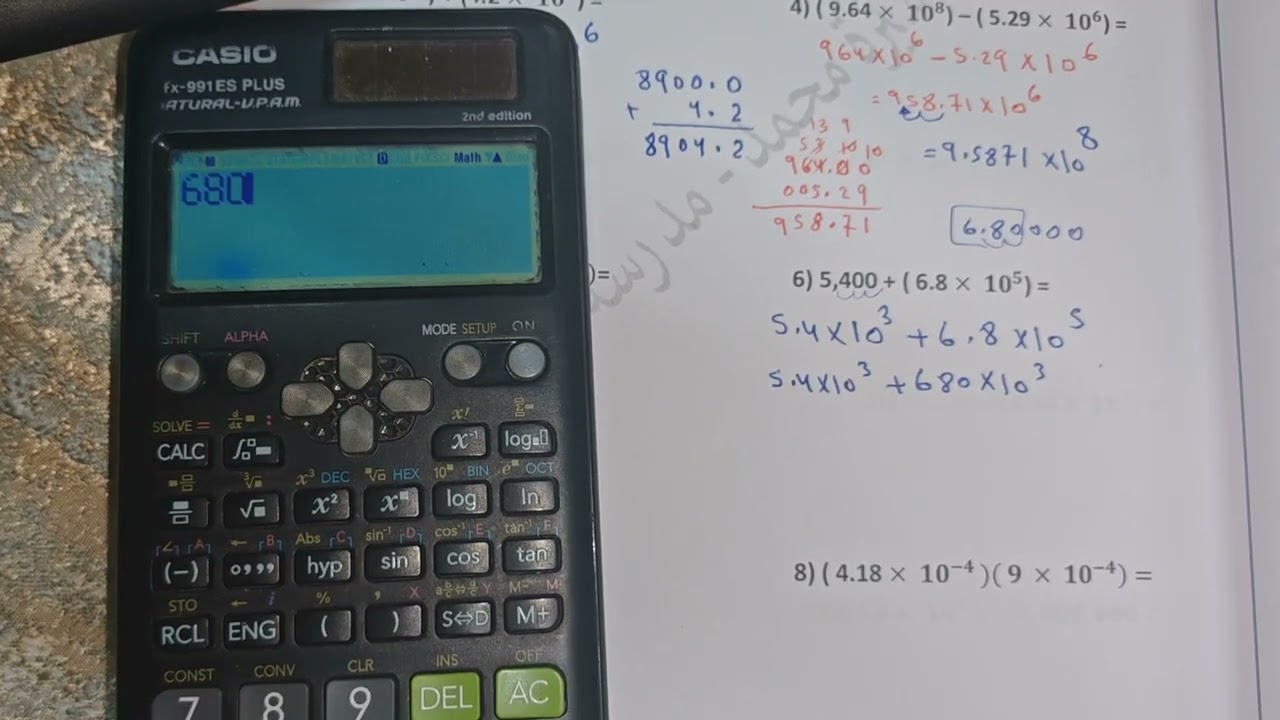 CASIO
fx-991ES PLUS
NATURAL-V.P.A.M.
2nd edition
Math ▲
680
SHIFT ALPHA MODE SETUP ON
SOLVE = d/dx : x! Σ=
CALC ∫ x⁻¹ log
x³ DEC √ HEX 10 BIN e OCT
√ x² x log ln
∠ A ← B Abs C sin⁻¹ D cos⁻¹ E tan⁻¹ F
(−) hyp sin cos tan
STO ← i % , X Y M− M
RCL ENG ( ) S⇔D M+
CONST CONV CLR INS OFF
7 8 9 DEL AC
6
8900.0
+ 4.2
8904.2
4) ( 9.64 × 10⁸) − ( 5.29 × 10⁶) =
964×10⁶ − 5.29 × 10⁶
= 958.71×10⁶
= 9.5871 ×10⁸
13 9
53 10 10
964.00
005.29
958.71
6.80000
)=
6) 5,400 + ( 6.8 × 10⁵) =
5.4×10³ + 6.8 ×10⁵
5.4×10³ + 680×10³
8) ( 4.18 × 10⁻⁴ )( 9 × 10⁻⁴) =